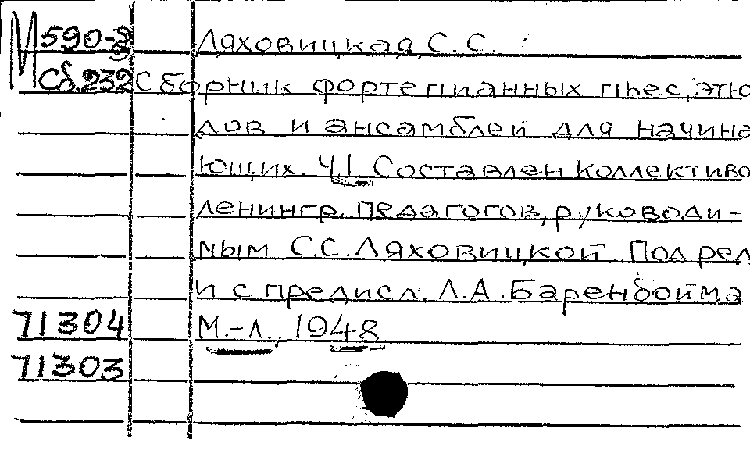 М 590-8 Ляховицкая, С. С.
Сб. 232 Сборник фортепианных пьес, этю
дов и ансамблей для начина
ющих. Ч.I Составлен коллективо
ленингр. педагогов, руководи-
мым С.С. Ляховицкой. Под ред
и с предисл. Л.А. Баренбойма
71304 М.-Л., 1948
71303